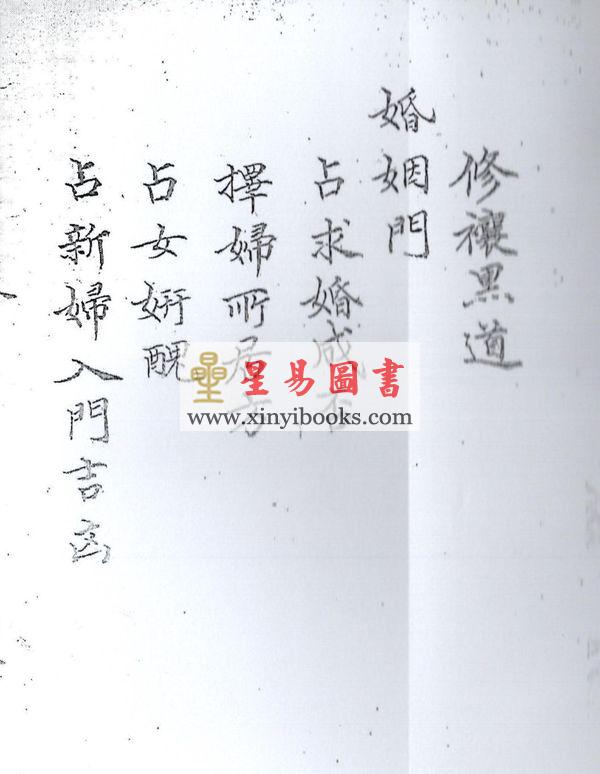 修禳黒道
婚姻門
占求婚成否
擇婦所居方
占女姸醜
占新婦入門吉凶
星易圖書
www.xinyibooks.com